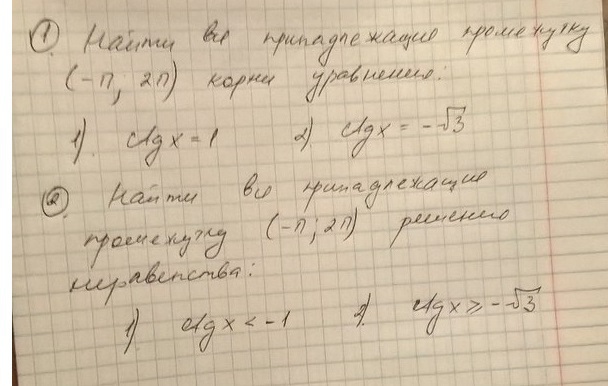 ① Найти все принадлежащие промежутку
(-π; 2π) корни уравнения:
1). ctg x = 1 2) ctg x = -√3
② Найти все принадлежащие
промежутку (-π; 2π) решения
неравенства:
1) ctg x < -1 2) ctg x ≥ -√3